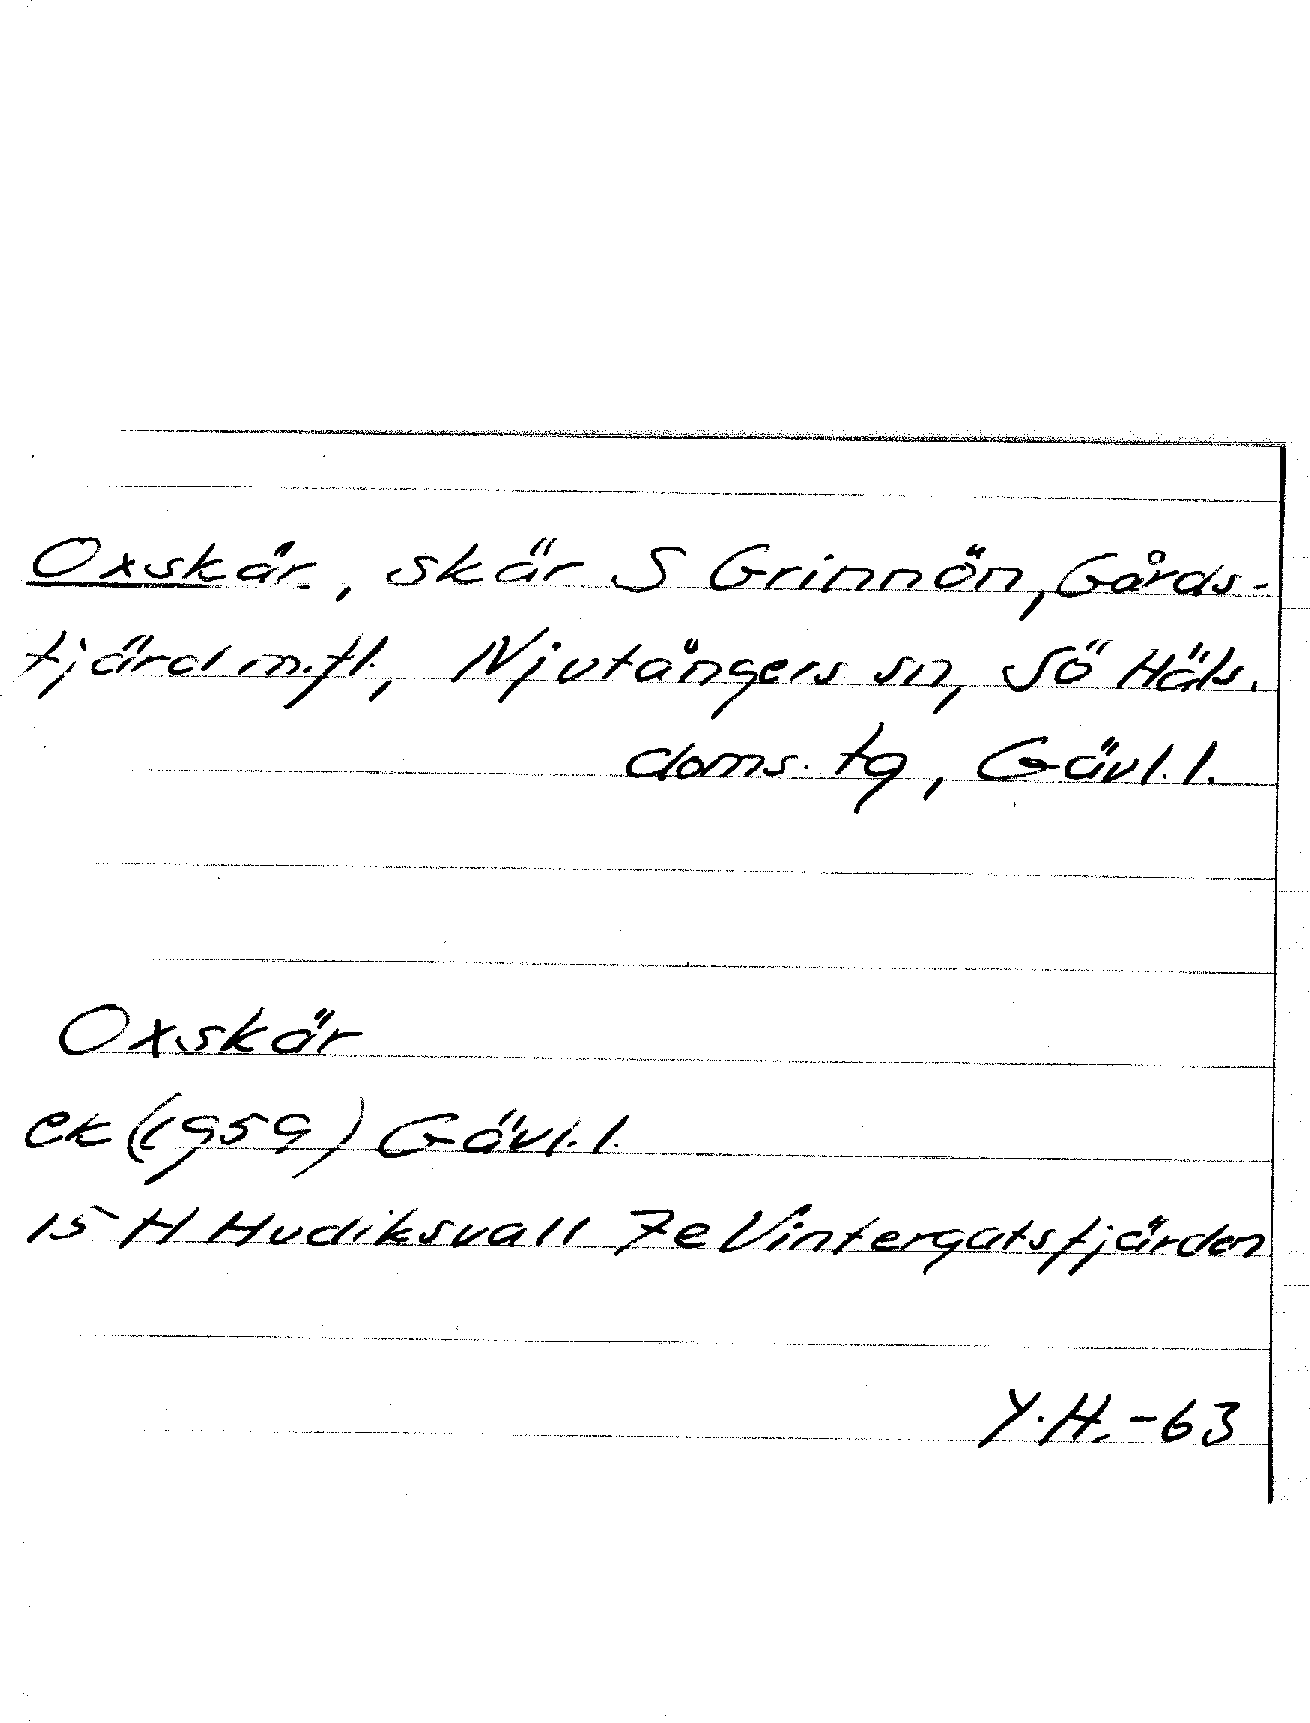 Oxskär, skär S Grinnön, Gårds-
fjärd m.fl., Njutångers sn, Sö Häls.
doms. tg, Gävl. l.
Oxskär
ek (1959) Gävl. l.
15 H Hudiksvall 7e Vintergatsfjärden
Y.H. -63